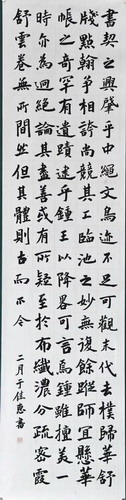 書契之興肇乎中繩文鳥迹不足可觀末代去樸歸華舒
牋點翰爭相誇尚競其工臨池之妙無復餘蹤師宜懸
帳之奇罕有遺蹟逮乎鍾王以降略可言焉鍾雖擅美一
時亦為迥絕論其盡善或有所疑至於布纖濃分疏密霞
舒雲卷無所間然但其體則古而不今
二月于佳 書